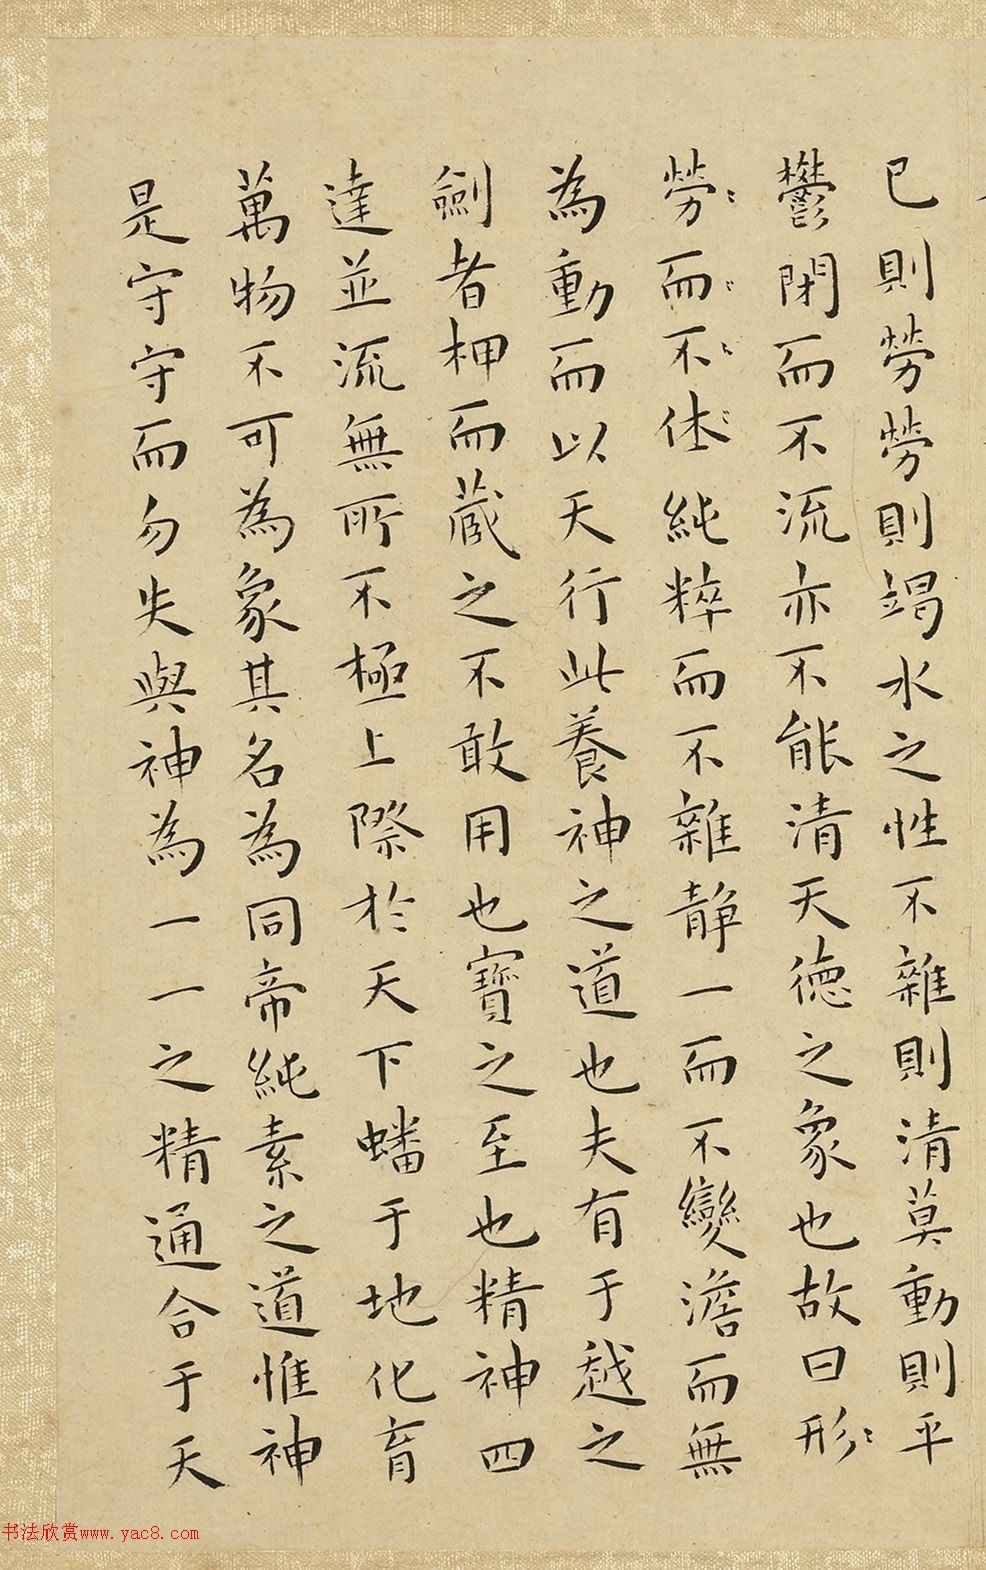 已則勞勞則竭水之性不雜則清莫動則平
鬱閉而不流亦不能清天德之象也故曰形
勞而不休純粹而不雜靜一而不變澹而無
為動而以天行此養神之道也夫有于越之
劍者柙而藏之不敢用也寶之至也精神四
達並流無所不極上際於天下蟠于地化育
萬物不可為象其名為同帝純素之道惟神
是守守而勿失與神為一一之精通合于天
书法欣赏www.yac8.com